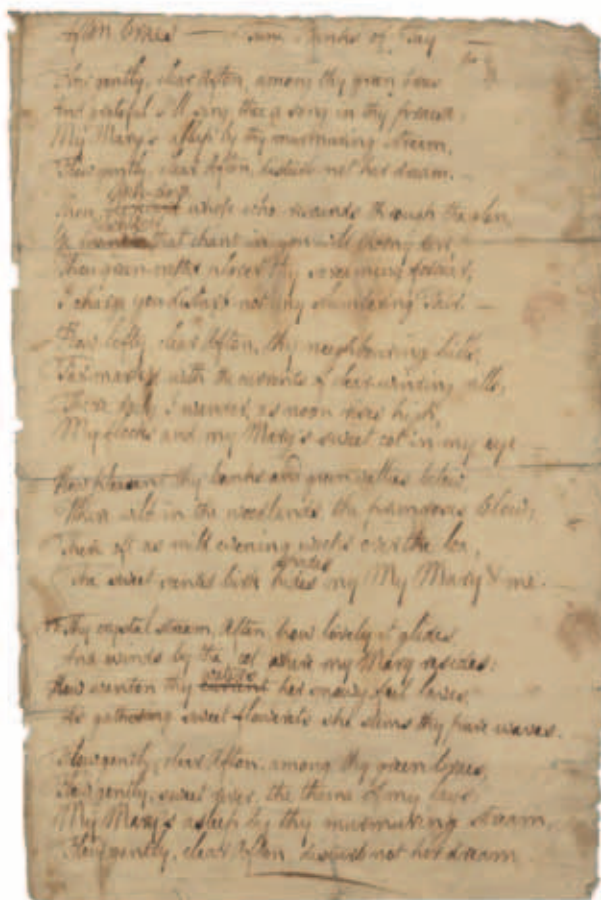 Afton braes — Tune Banks of Tay
Flow gently, clear Afton, among thy green braes
And grateful I'll sing thee a song in thy praise;
My Mary's asleep by thy murmuring stream,
Flow gently, clear Afton, disturb not her dream. —
Thou whose echo resounds through the glen,
Ye that chant in yon wild thorny den
Thou green crested plover thy screaming forbear,
I charge you disturb not my slumbering Fair. —
How lofty, clear Afton, thy neighbouring hills,
Far mark'd with the currents of clear winding rills,
There daily I wander, as noon rises high,
My flocks and my Mary's sweet cot in my eye
How pleasant thy banks and green vallies below
Where wild in the woodlands the primroses blow;
There oft as mild evening weeps over the lea,
The sweet scented birk shades hides my My Mary & me.
Thy crystal stream, Afton, how lovely it glides
And winds by the cot where my Mary resides;
How wanton thy waters current her snowy feet laves,
As gathering sweet flowerets she stems thy pure waves.
Flow gently, clear Afton, among thy green braes,
Flow gently, sweet river, the theme of my lays
My Mary's asleep by thy murmuring stream,
Flow gently, clear Afton, disturb not her dream